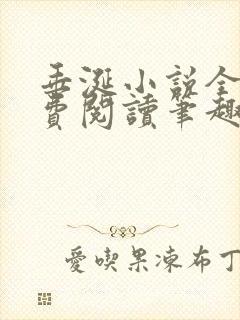 垂涎小説全
費閱讀筆趣
愛喫果凍布丁